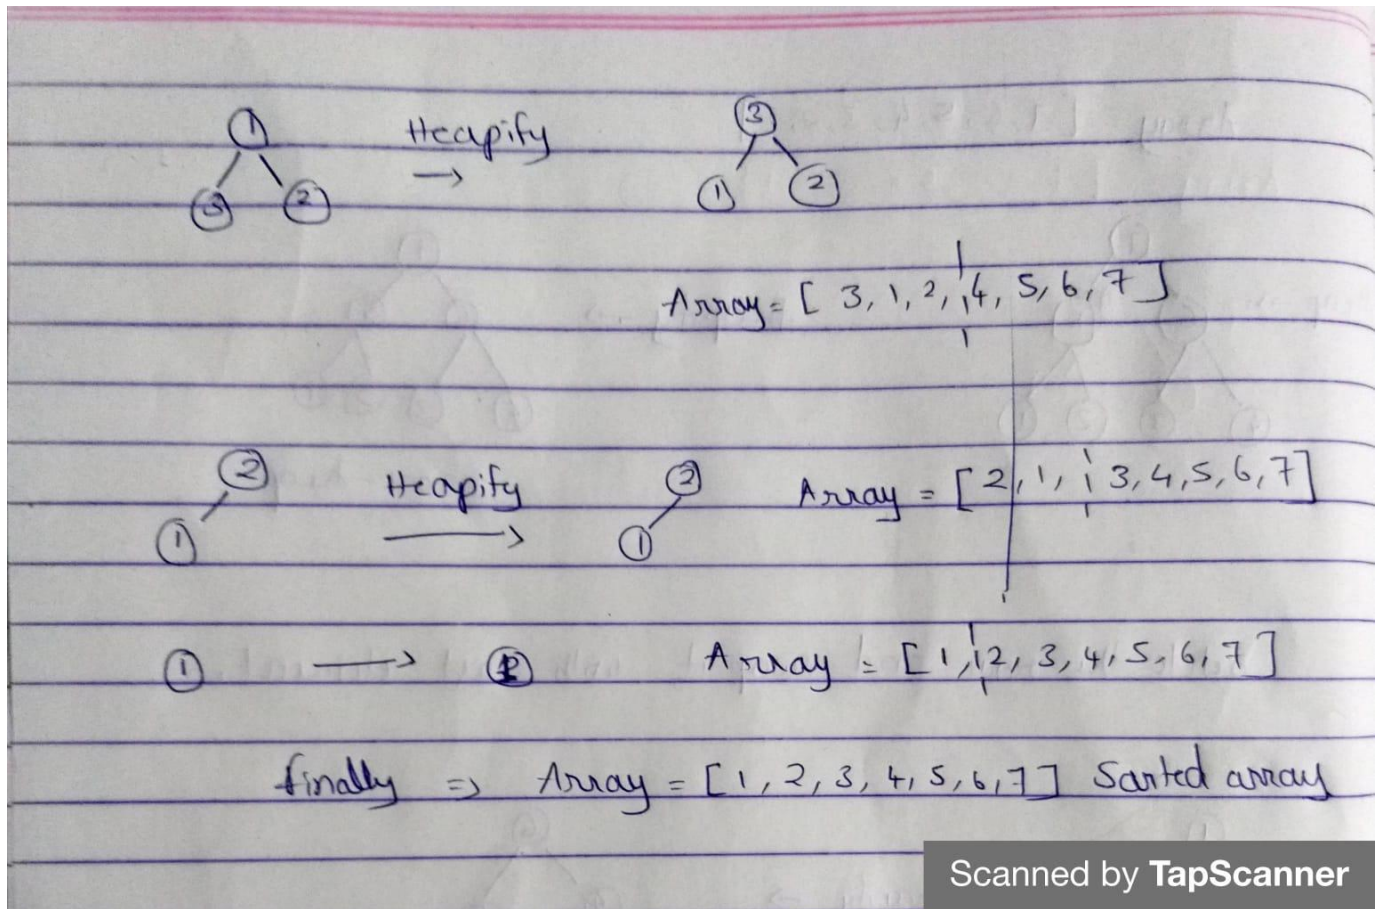 1 Heapify 3
3 2 → 1 2
Array = [ 3, 1, 2, 4, 5, 6, 7 ]
2 Heapify 2 Array = [ 2, 1, 3, 4, 5, 6, 7 ]
1 → 1
1 → Array = [ 1, 2, 3, 4, 5, 6, 7 ]
finally => Array = [ 1, 2, 3, 4, 5, 6, 7 ] Sorted array
Scanned by TapScanner